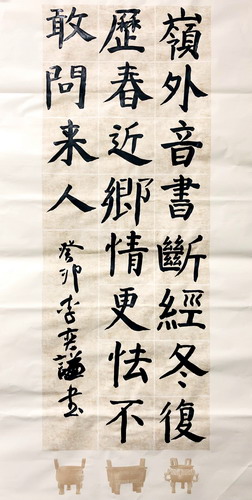 嶺外音書斷經冬復
歷春近鄉情更怯不
敢問来人
癸卯李奕謙書